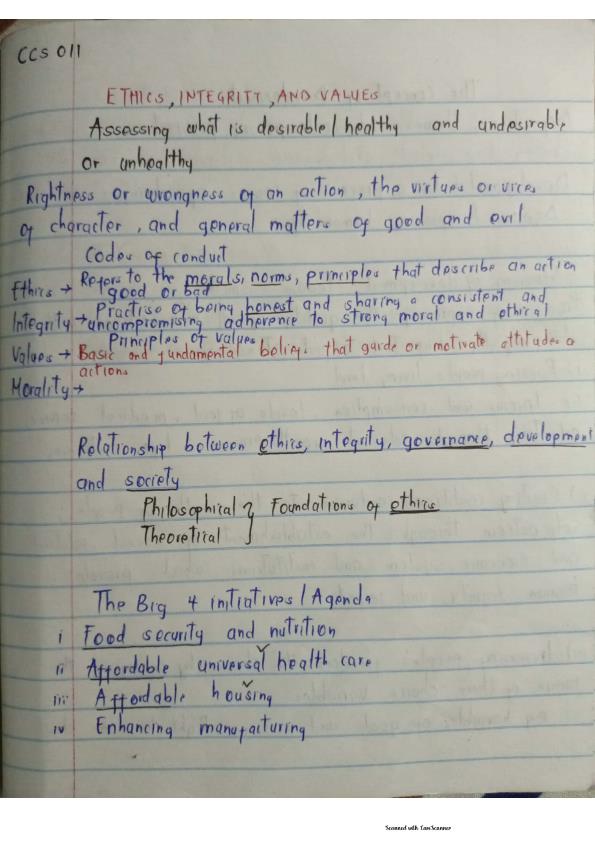 CCS 011
ETHICS, INTEGRITY, AND VALUES
Assessing what is desirable/healthy and undesirable
or unhealthy
Rightness or wrongness of an action, the virtues or vices
of character, and general matters of good and evil
Codes of conduct
Ethics → Refers to the morals, norms, principles that describe an action
good or bad
Integrity → Practise of being honest and sharing a consistent and
uncompromising adherence to strong moral and ethical
Principles of values
Values → Basic and fundamental beliefs that guide or motivate attitudes o
actions
Morality →
Relationship between ethics, integrity, governance, development
and society
Philosophical } Foundations of ethics
Theoretical
The Big 4 initiatives/Agenda
i Food security and nutrition
ii Affordable universal health care
iii Affordable housing
iv Enhancing manufacturing
Scanned with CamScanner